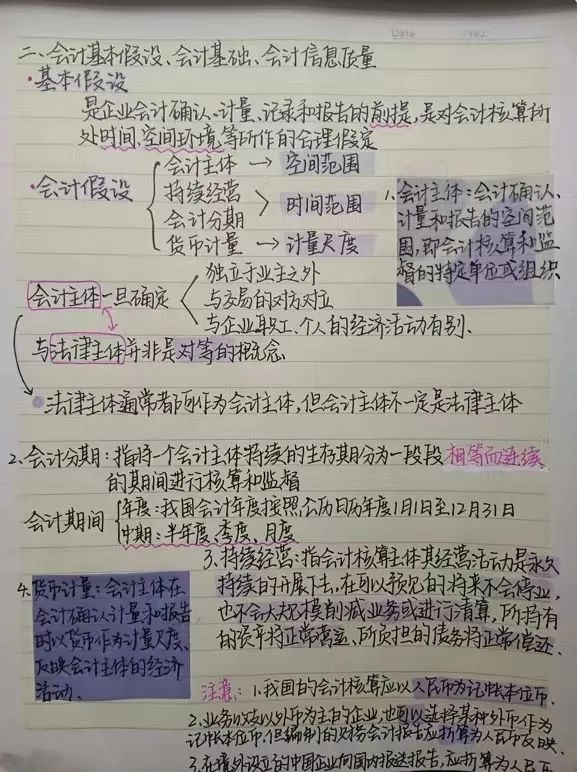 Date
NO.
二、会计基本假设、会计基础、会计信息质量
·基本假设
是企业会计确认、计量、记录和报告的前提,是对会计核算所
处时间、空间环境等所作的合理假定
·会计假设
会计主体 → 空间范围
持续经营
会计分期
时间范围
货币计量 → 计量尺度
1.会计主体:会计确认、
计量和报告的空间范
围,即会计核算和监
督的特定单位或组织
会计主体一旦确定
独立于业主之外
与交易的对方对立
与企业职工、个人的经济活动有别.
与法律主体并非是对等的概念
法律主体通常都可作为会计主体,但会计主体不一定是法律主体
2.会计分期:指将一个会计主体持续的生存期分为一段段相等而连续
的期间进行核算和监督
会计期间
年度:我国会计年度按照公历日历年度1月1日至12月31日
中期:半年度、季度、月度
3.持续经营:指会计核算主体其经营活动是永久
持续的开展下去,在可以预见的将来不会停业,
也不会大规模削减业务或进行清算,所持有
的资产将正常营运、所负担的债务将正常偿还.
4.货币计量:会计主体在
会计确认计量和报告
时以货币作为计量尺度、
反映会计主体的经济
活动.
注意:1.我国的会计核算应以人民币为记帐本位币.
2.业务收支以外币为主的企业,也可以选择某种外币作为
记帐本位币,但编制的财务会计报告应折算为人民币反映.
3.在境外设立的中国企业向国内报送报告,应折算为人民币